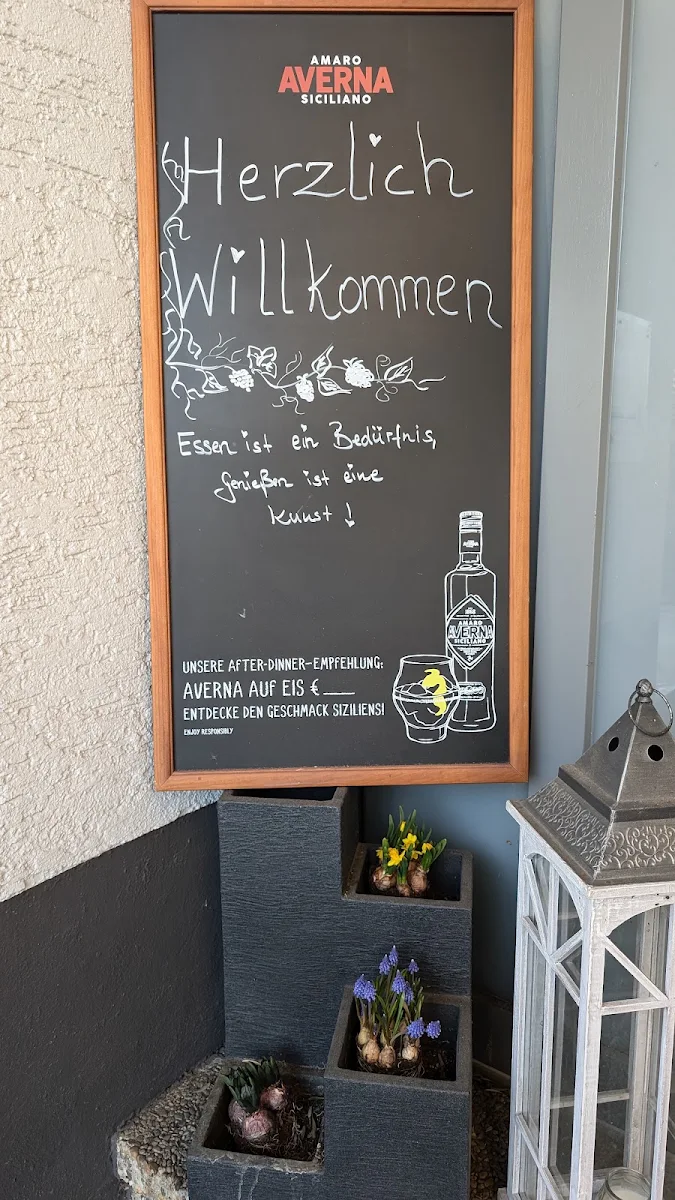 AMARO
AVERNA
SICILIANO
Herzlich
Willkommen
Essen ist ein Bedürfnis,
Genießen ist eine
Kunst !
AMARO
AVERNA
SICILIANO
UNSERE AFTER-DINNER-EMPFEHLUNG:
AVERNA AUF EIS €___
ENTDECKE DEN GESCHMACK SIZILIENS!
ENJOY RESPONSIBLY